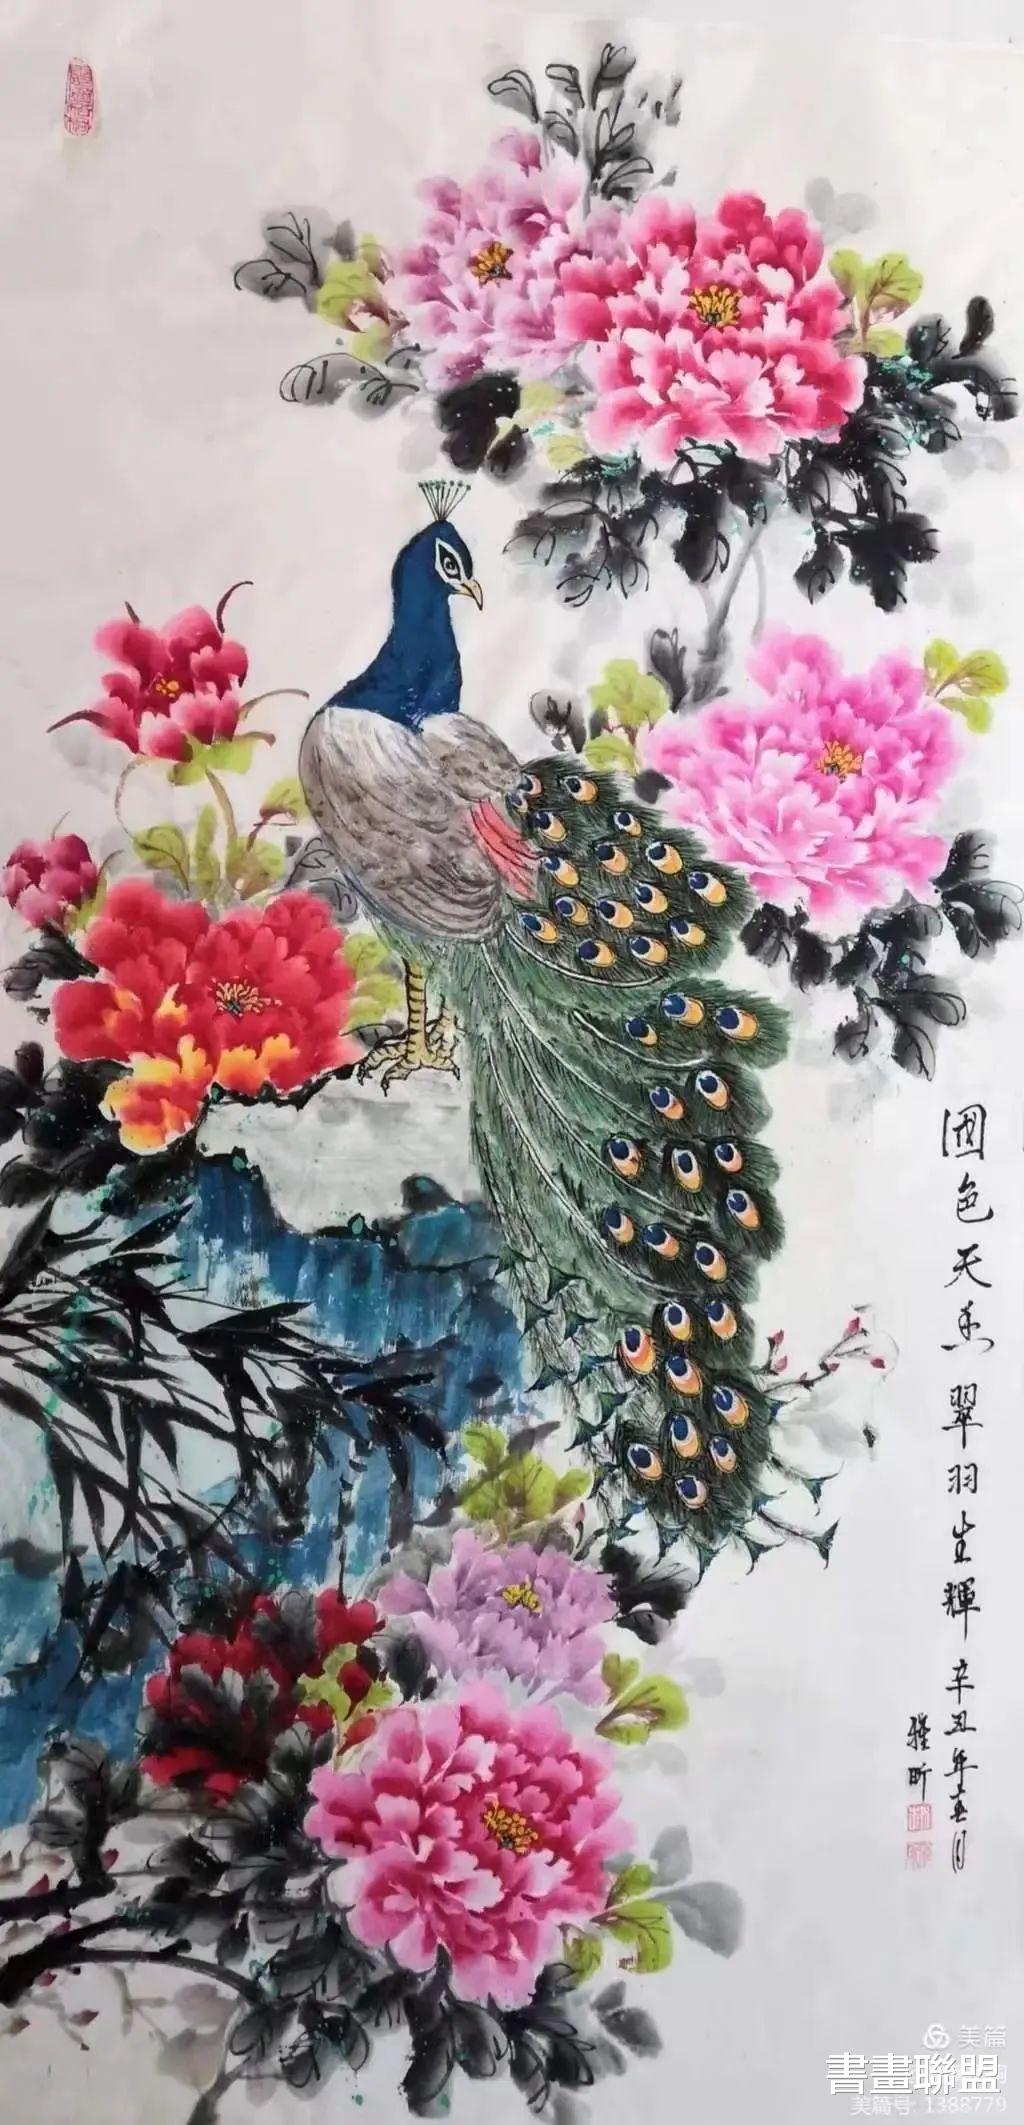 國色天香 翠羽生輝 辛丑年春月
雅昕
美篇
書畫聯盟
美篇号: 1388779